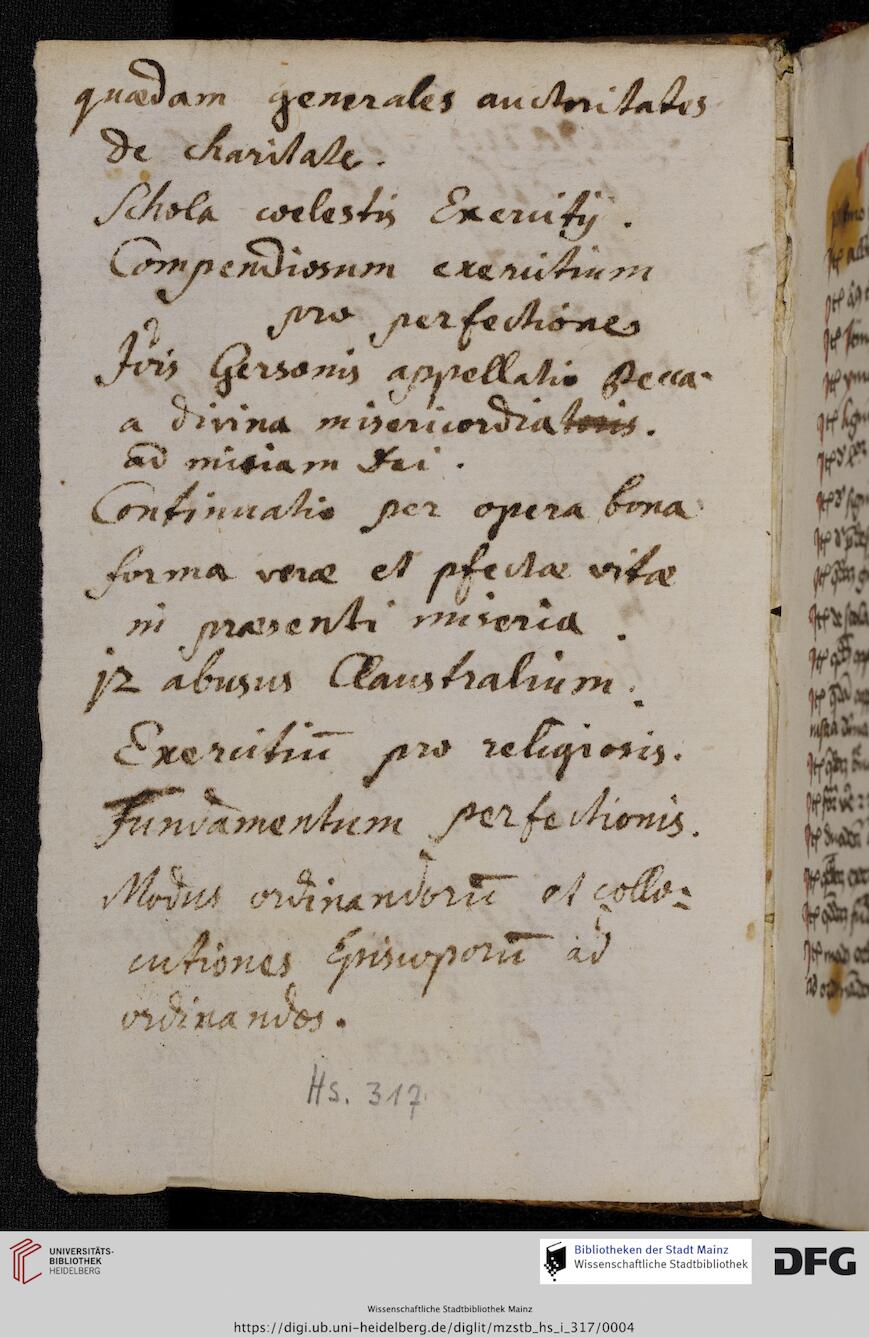 quædam generales auctoritates
de charitate.
Schola coelestis Exercitij.
Compendiosum exercitium
pro perfectione
Jōis Gersonis appellatio Pecca-
a divina misericordia toris.
ad misiam Dei.
Continuatio per opera bona
forma veræ et pfectæ vitæ
in præsenti miseria.
12 abusus Claustralium.
Exercitiū pro religiosis.
Fundamentum perfectionis.
Modus ordinandorū et collo:
cutiones Episcoporū ad
ordinandos.
Hs. 317
UNIVERSITÄTS-
BIBLIOTHEK
HEIDELBERG
Bibliotheken der Stadt Mainz
Wissenschaftliche Stadtbibliothek
DFG
Wissenschaftliche Stadtbibliothek Mainz
https://digi.ub.uni-heidelberg.de/diglit/mzstb_hs_i_317/0004